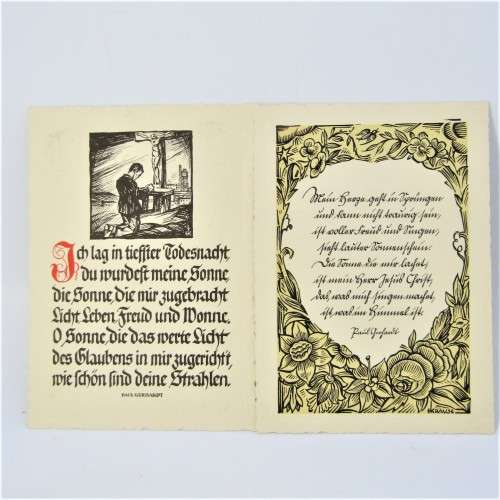 Ich lag in tieffter Todesnacht
du wurdest meine Sonne
die Sonne, die mir zugebracht
Licht, Leben, Freud und Wonne.
O Sonne, die das werte Licht
des Glaubens in mir zugericht,
wie schön sind deine Strahlen.
PAUL GERHARDT
Mein Herze geht in Sprüngen
und kann nicht traurig sein,
ist voller Freud und Singen,
sieht lauter Sonnenschein.
Die Sonne, die mir lachet,
ist mein Herr Jesus Christ;
das, was mich singen machet,
ist, was im Himmel ist.
Paul Gerhardt
KRAUSE